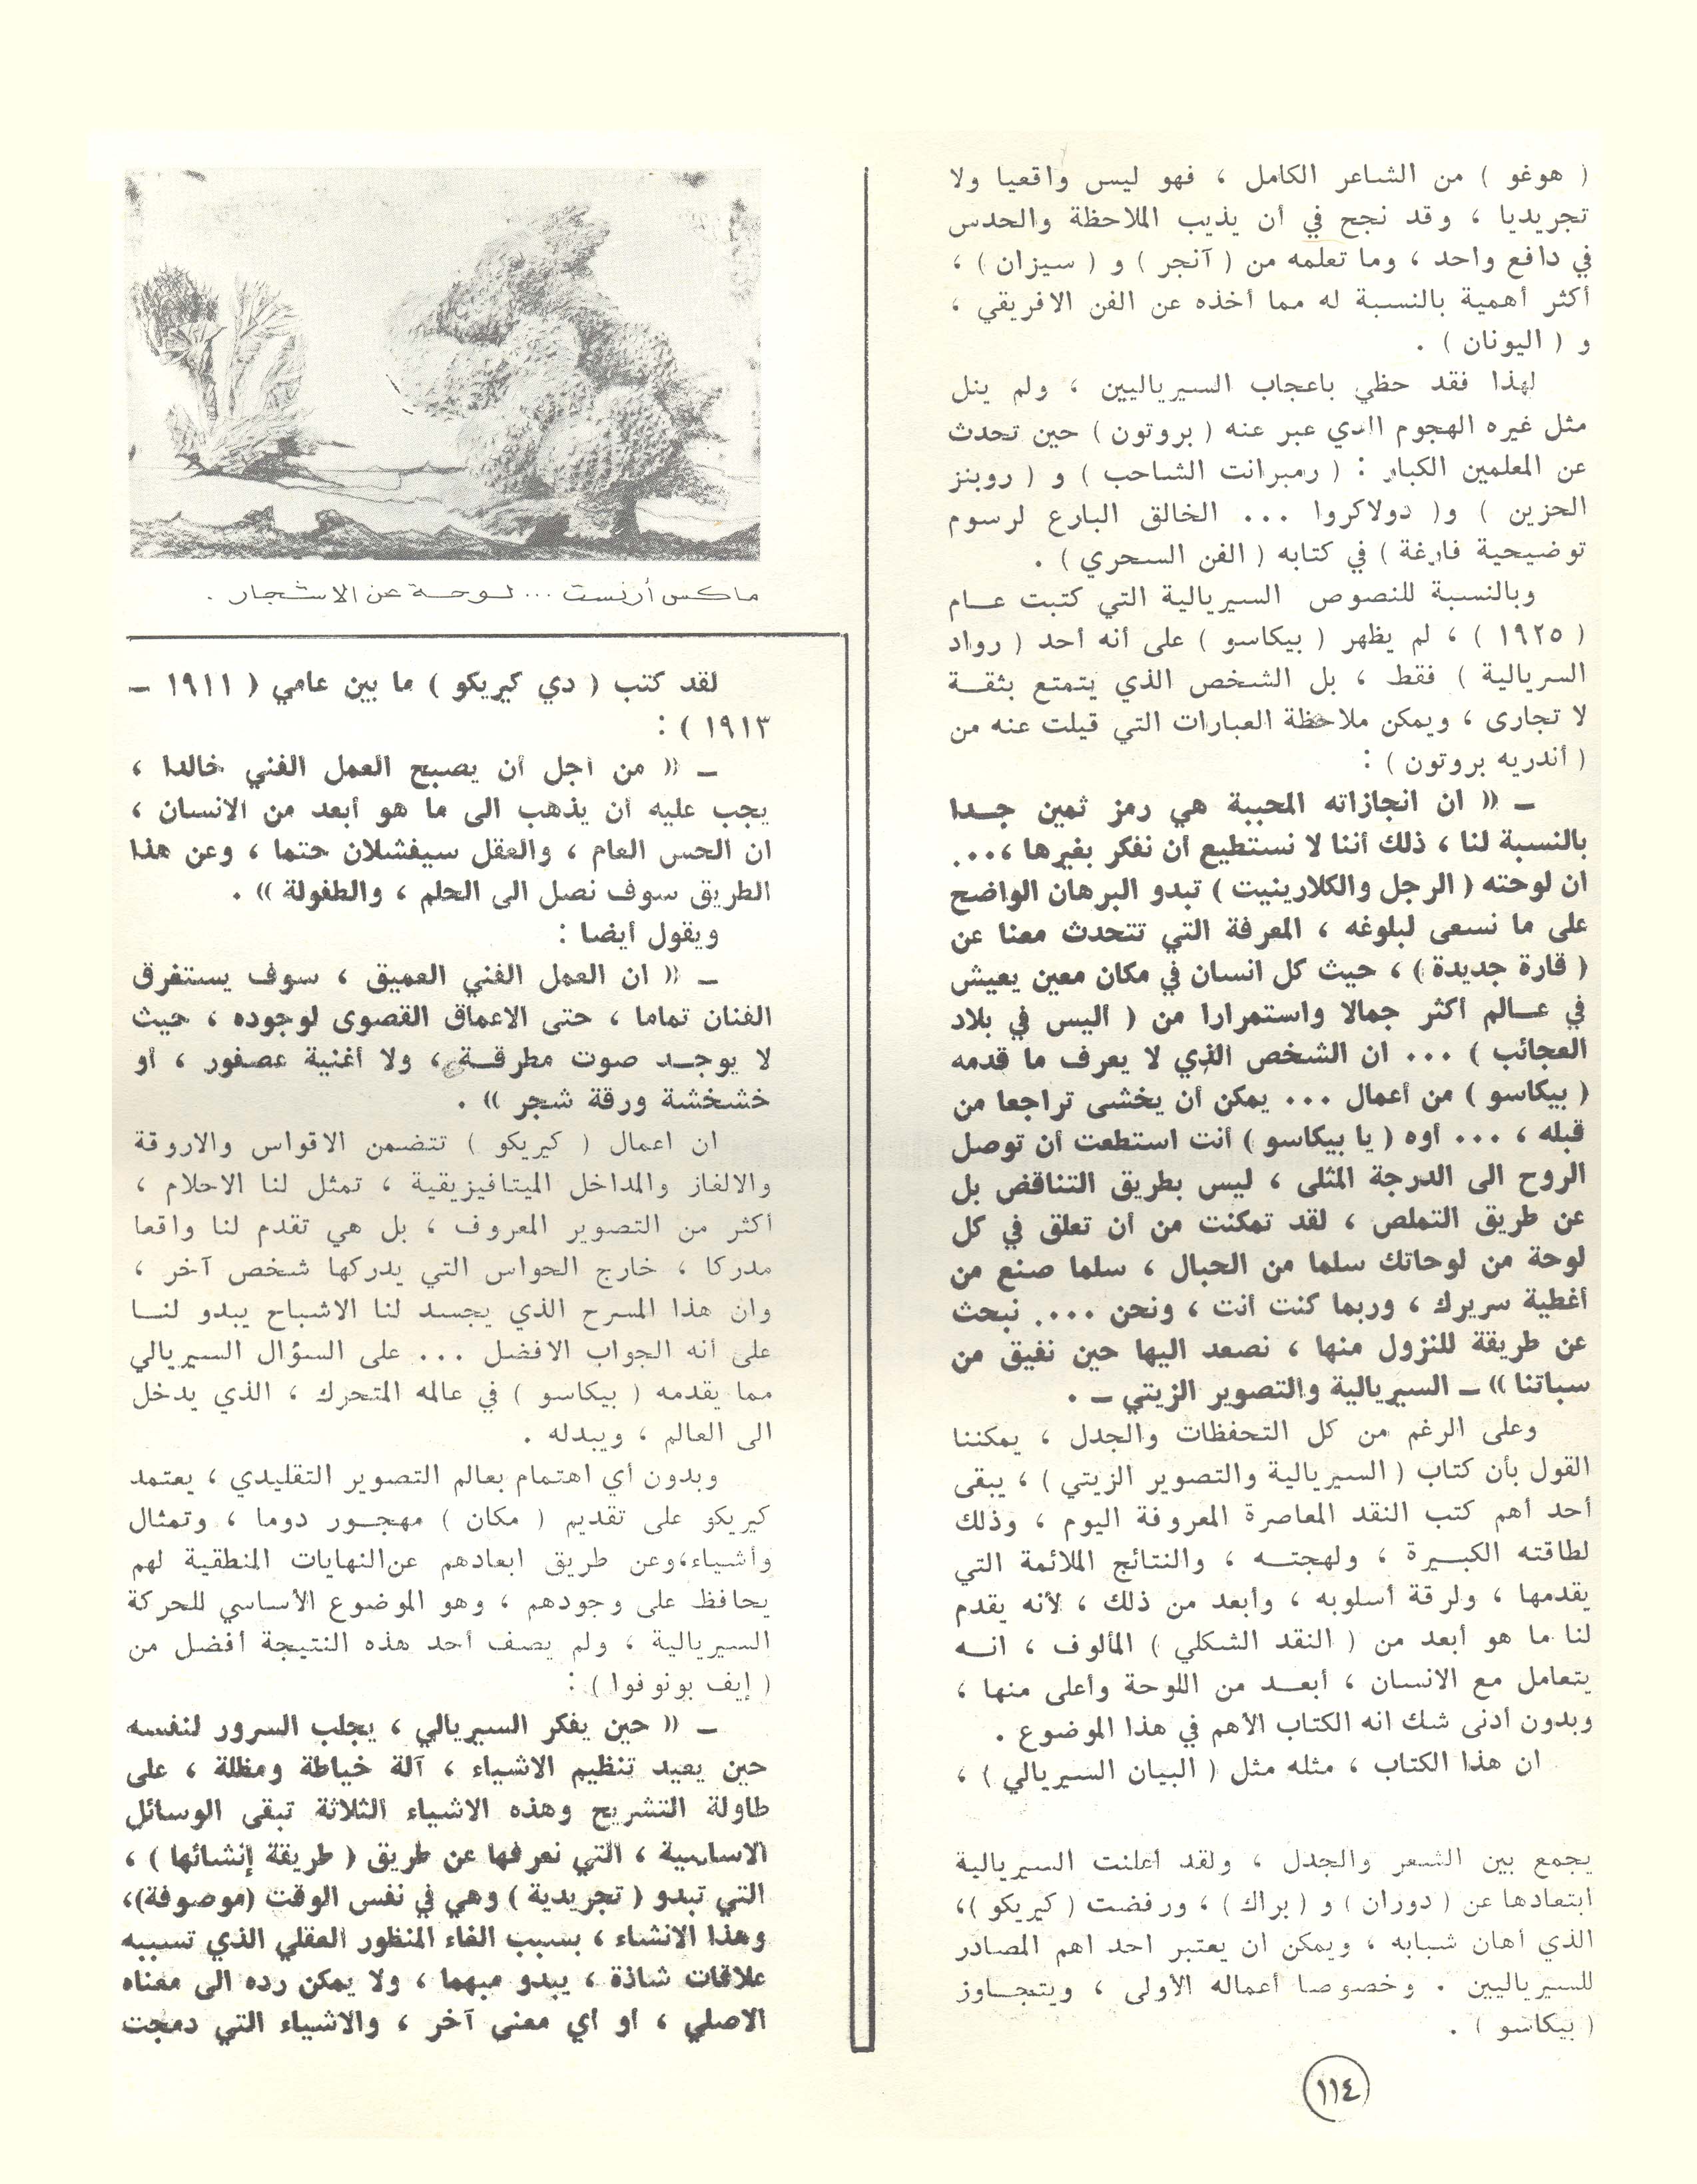 ( هوغو ) من الشاعر الكامل ، فهو ليس واقعيا ولا
تجريديا ، وقد نجح في أن يذيب الملاحظة والحدس
في دافع واحد ، وما تعلمه من ( آنجر ) و ( سيزان ) ،
أكثر أهمية بالنسبة له مما أخذه عن الفن الافريقي ،
و ( اليونان ) .
لهذا فقد حظي باعجاب السيرياليين ، ولم ينل
مثل غيره الهجوم الذي عبر عنه ( بروتون ) حين تحدث
عن المعلمين الكبار : ( رمبرانت الشاحب ) و ( روبنز
الحزين ) و( دولاكروا ... الخالق البارع لرسوم
توضيحية فارغة ) في كتابه ( الفن السحري ) .
وبالنسبة للنصوص السيريالية التي كتبت عــام
( ١٩٢٥ ) ، لم يظهر ( بيكاسو ) على أنه أحد ( رواد
السريالية ) فقط ، بل الشخص الذي يتمتع بثقــة
لا تجارى ، ويمكن ملاحظة العبارات التي قيلت عنه من
( أندريه بروتون ) :
ــ (( ان انجازاته المحببة هي رمز ثمين جــدا
بالنسبة لنا ، ذلك أننا لا نستطيع أن نفكر بغيرها ،...
ان لوحته ( الرجل والكلارينيت ) تبدو البرهان الواضح
على ما نسعى لبلوغه ، المعرفة التي تتحدث معنا عن
( قارة جديدة ) ، حيث كل انسان في مكان معين يعيش
في عــالم أكثر جمالا واستمرارا من ( أليس في بلاد
العجائب ) ... ان الشخص الذي لا يعرف ما قدمه
( بيكاسو ) من أعمال ... يمكن أن يخشى تراجعا من
قبله ، ... أوه ( يا بيكاسو ) أنت استطعت أن توصل
الروح الى الدرجة المثلى ، ليس بطريق التناقض بل
عن طريق التملص ، لقد تمكنت من أن تعلق في كل
لوحة من لوحاتك سلما من الحبال ، سلما صنع من
أغطية سريرك ، وربما كنت أنت ، ونحن .... نبحث
عن طريقة للنزول منها ، نصعد اليها حين نفيق من
سباتنا )) ــ السيريالية والتصوير الزيتي ــ .
وعلى الرغم من كل التحفظات والجدل ، يمكننا
القول بأن كتاب ( السيريالية والتصوير الزيتي ) ، يبقى
أحد أهم كتب النقد المعاصرة المعروفة اليوم ، وذلك
لطاقته الكبــيرة ، ولهجتــه ، والنتائج الملائمة التي
يقدمها ، ولرقة أسلوبه ، وأبعد من ذلك ، لأنه يقدم
لنا ما هو أبعد من ( النقد الشكلي ) المألوف ، انــه
يتعامل مع الانسان ، أبعــد من اللوحة وأعلى منها ،
وبدون أدنى شك انه الكتاب الأهم في هذا الموضوع .
ان هذا الكتاب ، مثله مثل ( البيان السيريالي ) ،
يجمع بين الشعر والجدل ، ولقد أعلنت السيريالية
ابتعادها عن ( دوران ) و ( براك ) ، ورفضت ( كيريكو )،
الذي أهان شبابه ، ويمكن ان يعتبر احد اهم المصادر
للسيرياليين . وخصوصا أعماله الأولى ، ويتجــاوز
( بيكاسو ) .
ماكس أرنست ... لـوحـة عن الاشجار .
لقد كتب ( دي كيريكو ) ما بين عامي ( ١٩١١ ــ
١٩١٣ ) :
ــ (( من أجل أن يصبح العمل الفني خالدا ،
يجب عليه أن يذهب الى ما هو أبعد من الانسان ،
ان الحس العام ، والعقل سيفشلان حتما ، وعن هذا
الطريق سوف نصل الى الحلم ، والطفولة )) .
ويقول أيضا :
ــ (( ان العمل الفني العميق ، سوف يستغرق
الفنان تماما ، حتى الاعماق القصوى لوجوده ، حيث
لا يوجــد صوت مطرقــة ، ولا أغنية عصفور ، أو
خشخشة ورقة شجر )) .
ان اعمال ( كيريكو ) تتضمن الاقواس والاروقة
والالغاز والمداخل الميتافيزيقية ، تمثل لنا الاحلام ،
أكثر من التصوير المعروف ، بل هي تقدم لنا واقعا
مدركا ، خارج الحواس التي يدركها شخص آخر ،
وان هذا المسرح الذي يجسد لنا الاشباح يبدو لنــا
على أنه الجواب الافضل ... على السؤال السيريالي
مما يقدمه ( بيكاسو ) في عالمه المتحرك ، الذي يدخل
الى العالم ، ويبدله .
وبدون أي اهتمام بعالم التصوير التقليدي ، يعتمد
كيريكو على تقديم ( مكان ) مهجــور دوما ، وتمثال
وأشياء،وعن طريق ابعادهم عن النهايات المنطقية لهم
يحافظ على وجودهم ، وهو الموضوع الأساسي للحركة
السيريالية ، ولم يصف أحد هذه النتيجة أفضل من
( إيف بونوفوا ) :
ــ (( حين يفكر السيريالي ، يجلب السرور لنفسه
حين يعيد تنظيم الاشياء ، آلة خياطة ومظلة ، على
طاولة التشريح وهذه الاشياء الثلاثة تبقى الوسائل
الاساسية ، التي نعرفها عن طريق ( طريقة إنشائها ) ،
التي تبدو ( تجريدية ) وهي في نفس الوقت (موصوفة)،
وهذا الانشاء ، بسبب الغاء المنظور العقلي الذي تسببه
علاقات شاذة ، يبدو مبهما ، ولا يمكن رده الى معناه
الاصلي ، أو أي معنى آخر ، والاشياء التي دمجت
١١٤